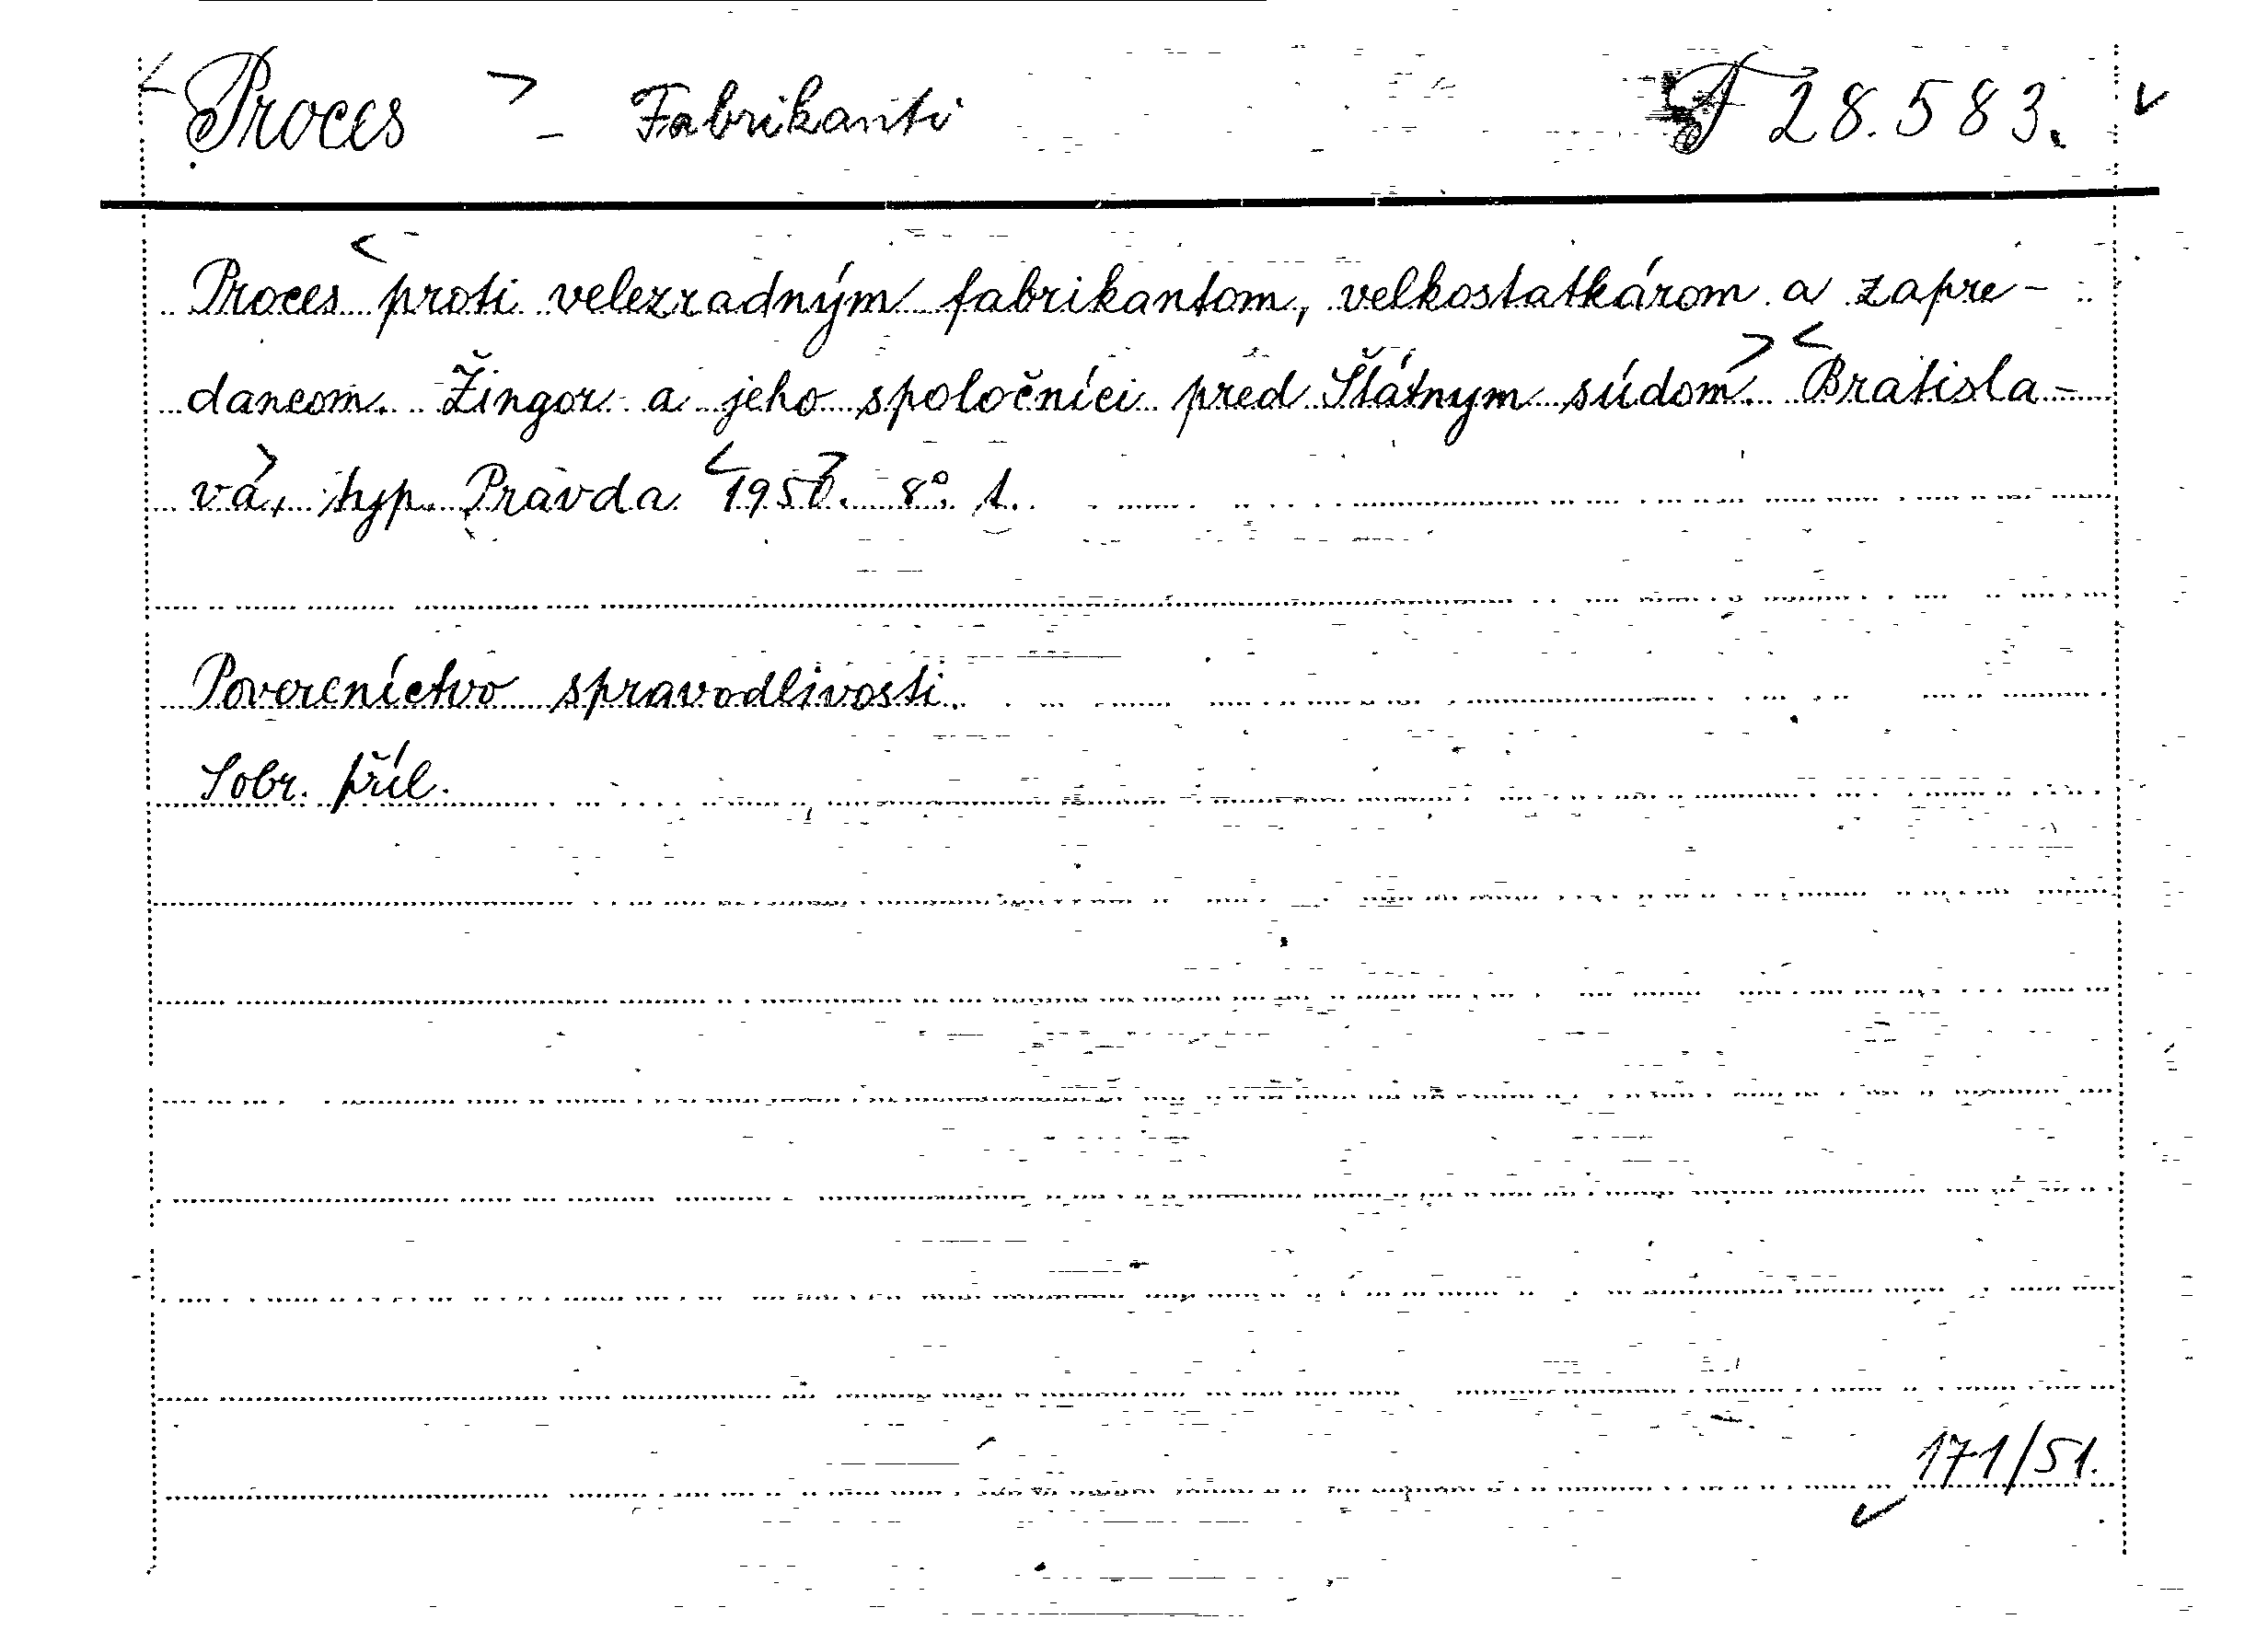 Proces - Fabrikanti F 28.583.
Proces proti velezradným fabrikantom, velkostatkárom a zapre-
dancom. Žingor a jeho spoločníci pred Štátnym súdom. Bratisla-
va, typ. Pravda 1950. 8°. 1.
Povereníctvo spravodlivosti.
Sobr. příl.
171/51.